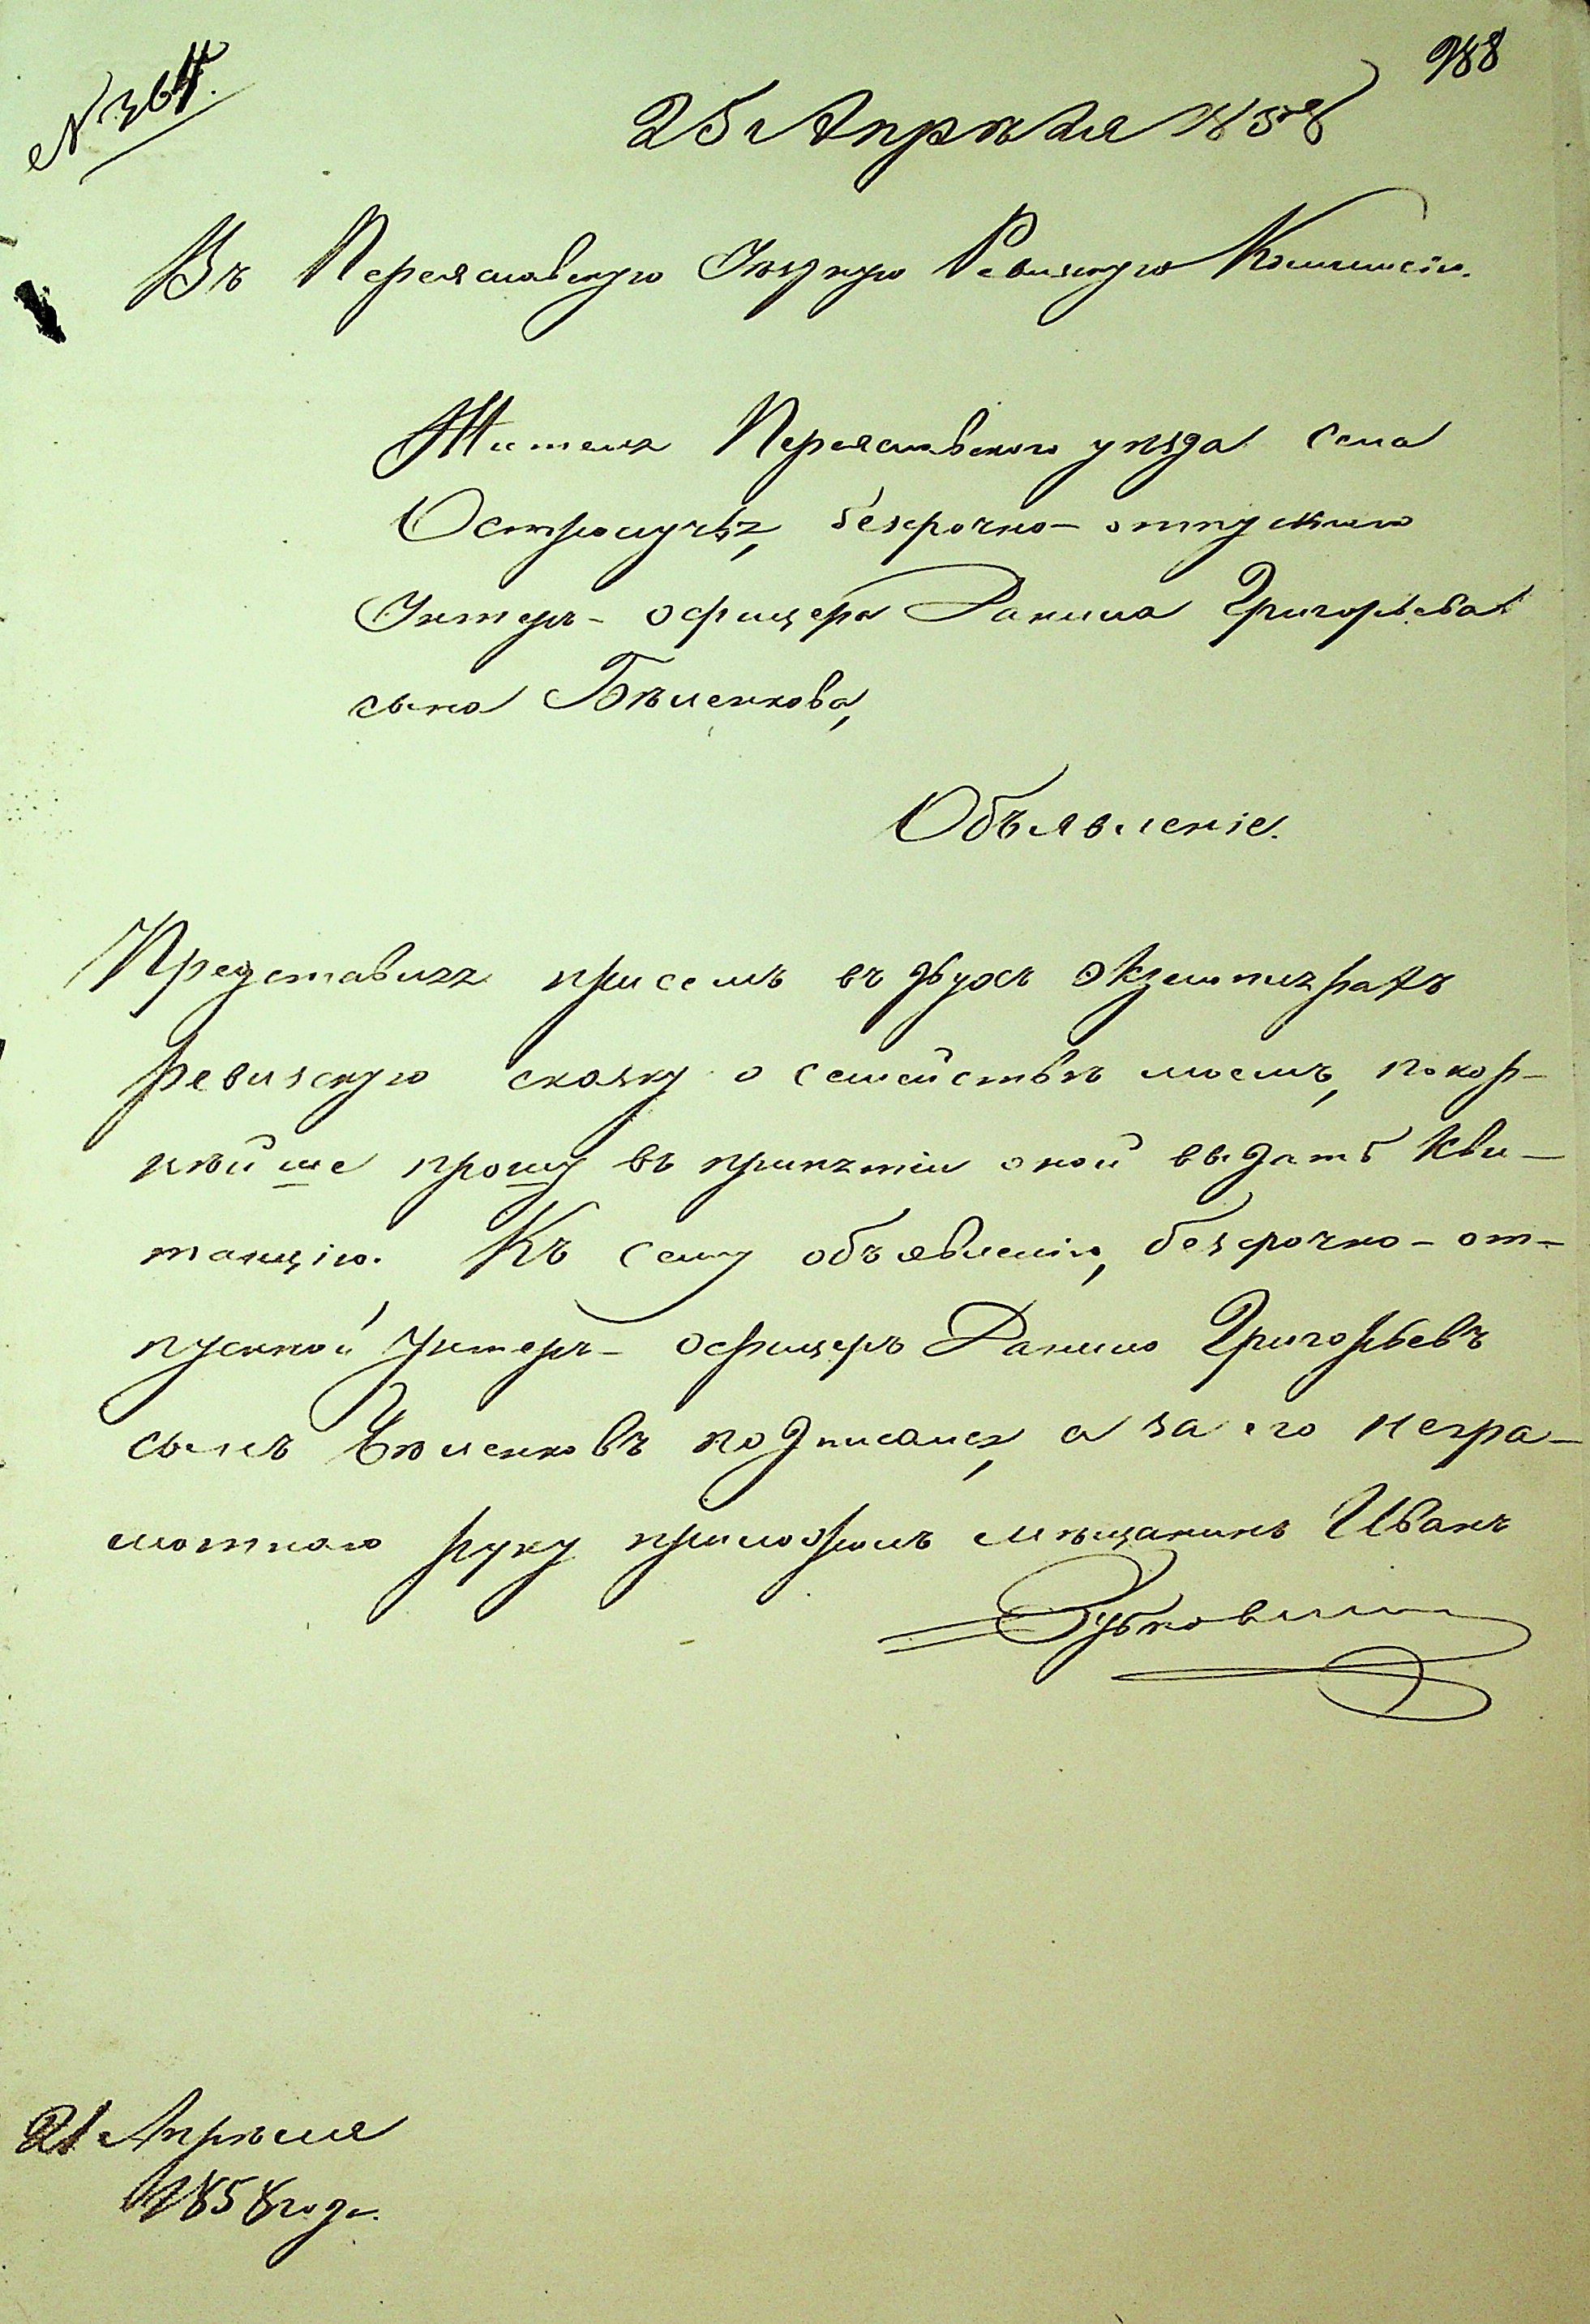 988
№ 364.
25 Апрѣля 1858
Въ Переяславскую Уѣздную Ревизскую Коммисію.
Жителя Переяславского уѣзда села
Остролучья, безсрочно-отпускного
Унтеръ-офицера Данила Григорьева
сына Бѣленкова,
Объявленіе.
Представляя при семъ въ двухъ экземплярахъ
ревизскую сказку о семействѣ моемъ, покор-
нѣйше прошу въ принятіи оной выдать кви-
танцію. Къ сему объявленію, безсрочно-от-
пускной Унтеръ-офицеръ Данило Григорьевъ
сынъ Бѣленковъ подписался, а за его негра-
мотного руку приложилъ мѣщанинъ Иванъ
21 Апрѣля
1858 года.